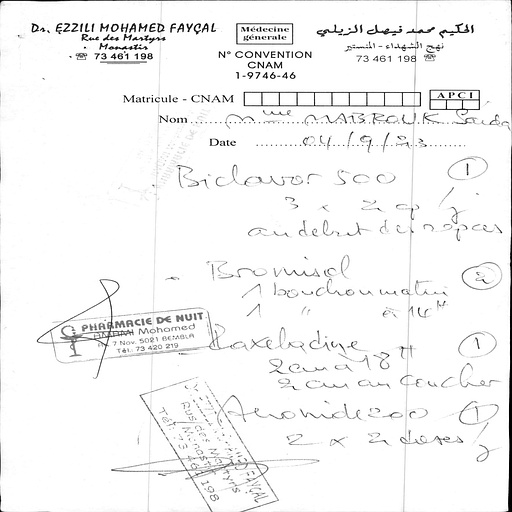 Dr. EZZILI MOHAMED FAYÇAL
Rue des Martyrs
Monastir
☎ 73 461 198
Médecine
générale
N° CONVENTION
CNAM
1-9746-46
الحكيم محمد فيصل الزيلي
نهج الشهداء - المنستير
73 461 198 ☎
Matricule - CNAM
APCI
Nom Mme MABROUK Saida
Date 04/9/23
Biclavor 500 1
3 x 2 cp / j
au début des repas
- Bromisol 2
1 bouchon matin
1 " à 14H
Paxeladine 1
2 cm à 18H
2 cm au coucher
Aeronide 200 1
2 x 2 doses / j
PHARMACIE DE NUIT
HAMMI Mohamed
7 Nov. 5021 BEMBLA
Tél. 73 420 219
FAYÇAL
Rue des Martyrs
Monastir
Tél: 73 461 198